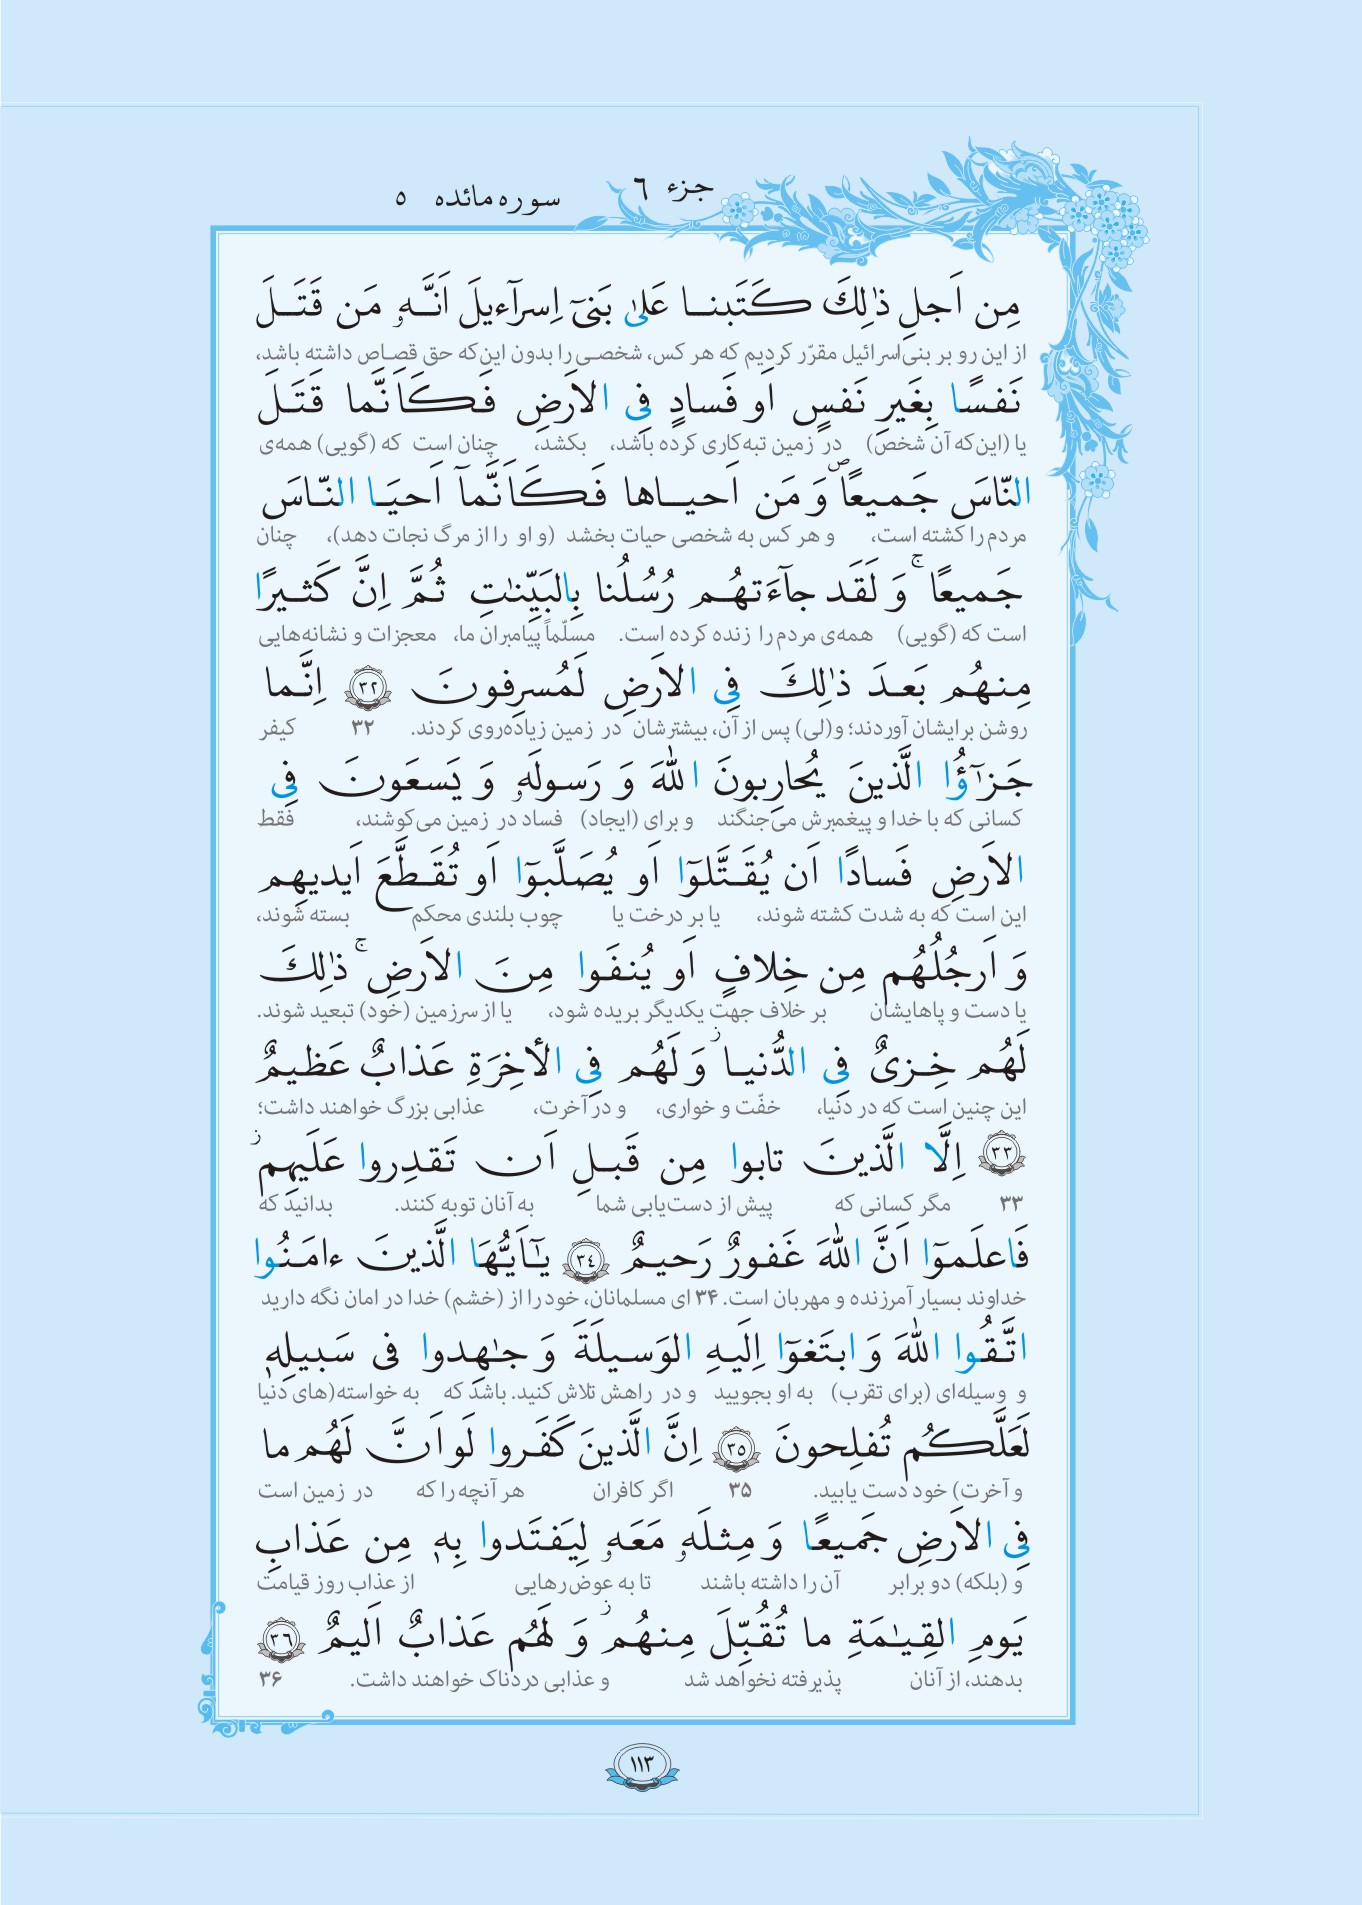 جزء ٦ سوره مائده ٥
مِن اَجلِ ذٰلِكَ كَتَبنا عَلىٰ بَنىٓ اِسرآءيلَ اَنَّهٗ مَن قَتَلَ
از این رو بر بنی‌اسرائیل مقرّر کردیم که هر کس، شخصی را بدون این‌که حق قصاص داشته باشد،
نَفسًا بِغَيرِ نَفسٍ اَو فَسادٍ فِى الاَرضِ فَكَاَنَّما قَتَلَ
یا (این‌که آن شخص) در زمین تبه‌کاری کرده باشد، بکشد، چنان است که (گویی) همه‌ی
النّاسَ جَميعًاۖ وَ مَن اَحياها فَكَاَنَّمآ اَحيَا النّاسَ
مردم را کشته است، و هر کس به شخصی حیات بخشد (و او را از مرگ نجات دهد)، چنان
جَميعًاۚ وَ لَقَد جآءَتهُم رُسُلُنا بِالبَيِّنٰتِ ثُمَّ اِنَّ كَثيرًا
است که (گویی) همه‌ی مردم را زنده کرده است. مسلّماً پیامبران ما، معجزات و نشانه‌هایی
مِنهُم بَعدَ ذٰلِكَ فِى الاَرضِ لَمُسرِفونَ ٣٢ اِنَّما
روشن برایشان آوردند؛ و(لی) پس از آن، بیشترشان در زمین زیاده‌روی کردند. ۳۲ کیفر
جَزٰٓؤُا الَّذينَ يُحارِبونَ اللهَ وَ رَسولَهٗ وَ يَسعَونَ فِى
کسانی که با خدا و پیغمبرش می‌جنگند و برای (ایجاد) فساد در زمین می‌کوشند، فقط
الاَرضِ فَسادًا اَن يُقَتَّلوٓا اَو يُصَلَّبوٓا اَو تُقَطَّعَ اَيديهِم
این است که به شدت کشته شوند، یا بر درخت یا چوب بلندی محکم بسته شوند،
وَ اَرجُلُهُم مِن خِلافٍ اَو يُنفَوا مِنَ الاَرضِۚ ذٰلِكَ
یا دست و پاهایشان بر خلاف جهت یکدیگر بریده شود، یا از سرزمین (خود) تبعید شوند.
لَهُم خِزىٌ فِى الدُّنياز وَ لَهُم فِى الأخِرَةِ عَذابٌ عَظيمٌ
این چنین است که در دنیا، خفّت و خواری، و در آخرت، عذابی بزرگ خواهند داشت؛
٣٣ اِلَّا الَّذينَ تابوا مِن قَبلِ اَن تَقدِروا عَلَيهِمز
۳۳ مگر کسانی که پیش از دست‌یابی شما به آنان توبه کنند. بدانید که
فَاعلَموٓا اَنَّ اللهَ غَفورٌ رَحيمٌ ٣٤ يٰٓاَيُّهَا الَّذينَ ءامَنُوا
خداوند بسیار آمرزنده و مهربان است. ۳۴ ای مسلمانان، خود را از (خشم) خدا در امان نگه دارید
اتَّقُوا اللهَ وَ ابتَغوٓا اِلَيهِ الوَسيلَةَ وَ جٰهِدوا فى سَبيلِهٖ
و وسیله‌ای (برای تقرب) به او بجویید و در راهش تلاش کنید. باشد که به خواسته(های دنیا
لَعَلَّكُم تُفلِحونَ ٣٥ اِنَّ الَّذينَ كَفَروا لَو اَنَّ لَهُم ما
و آخرت) خود دست یابید. ۳۵ اگر کافران هر آنچه را که در زمین است
فِى الاَرضِ جَميعًا وَ مِثلَهٗ مَعَهٗ لِيَفتَدوا بِهٖ مِن عَذابِ
و (بلکه) دو برابر آن را داشته باشند تا به عوض رهایی از عذاب روز قیامت
يَومِ القِيٰمَةِ ما تُقُبِّلَ مِنهُمز وَ لَهُم عَذابٌ اَليمٌ ٣٦
بدهند، از آنان پذیرفته نخواهد شد و عذابی دردناک خواهند داشت. ۳۶
١١٣